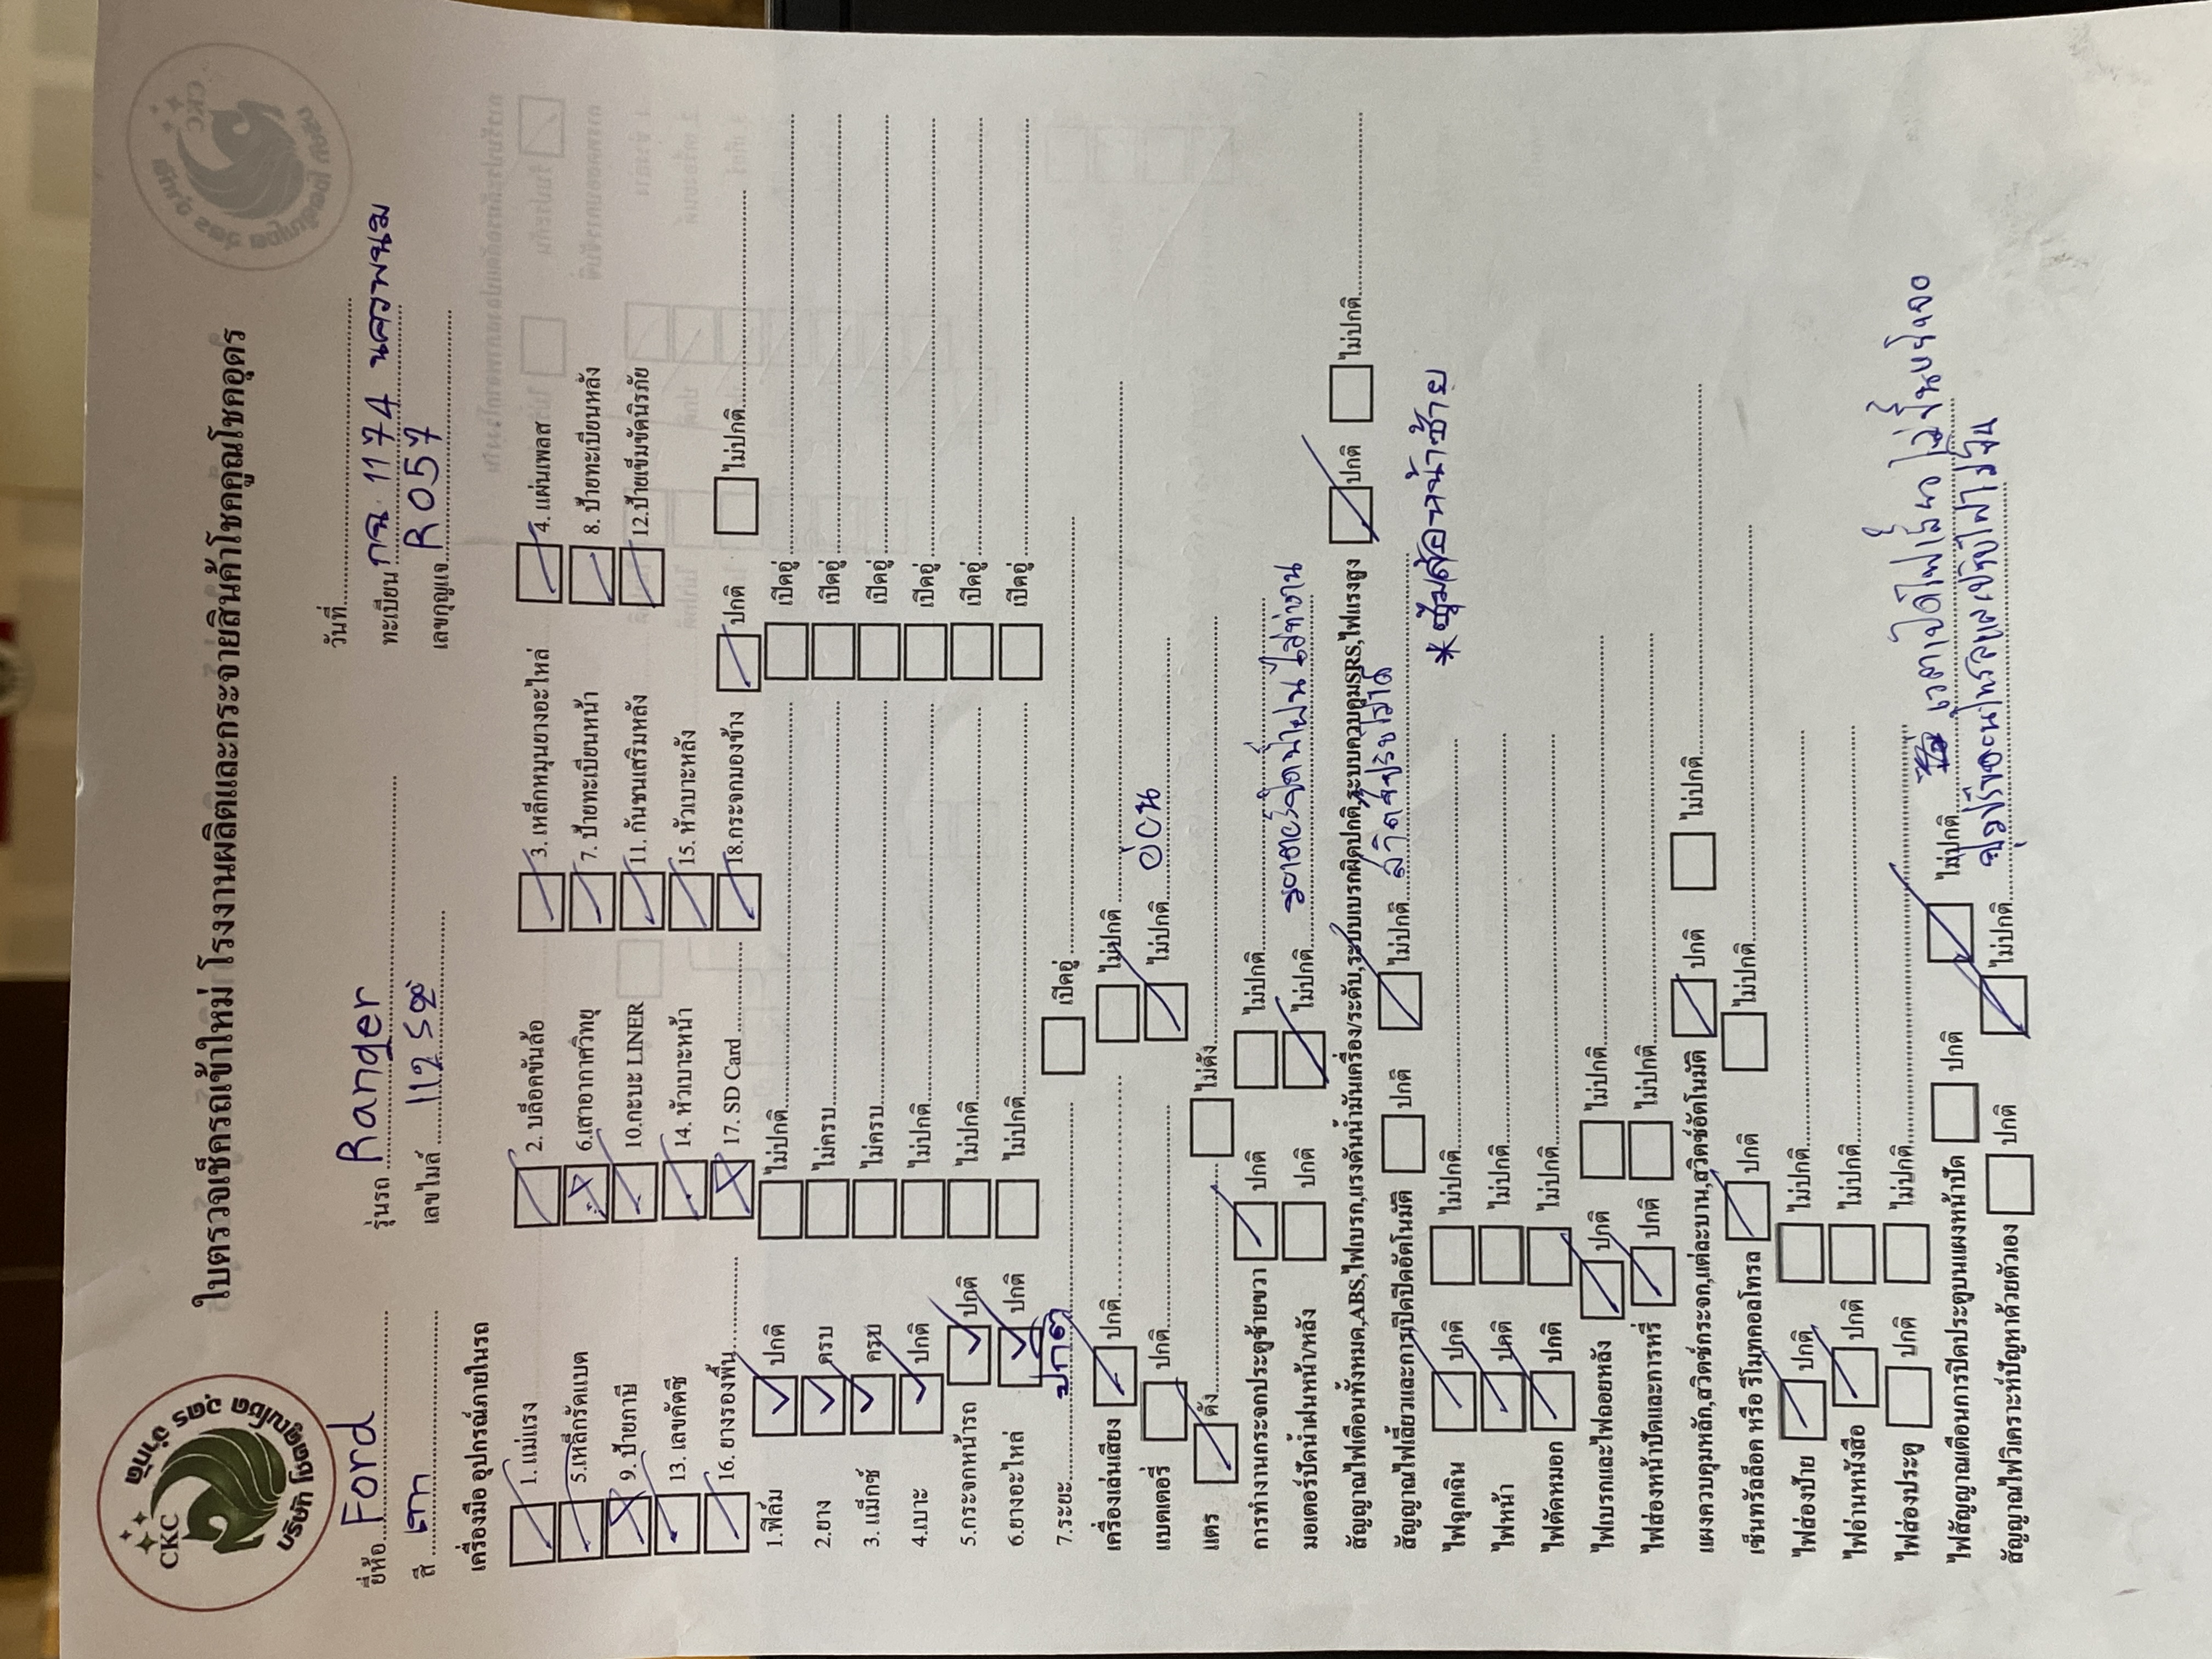 CKC
บริษัท โชคคูณโชค อุดร จำกัด
ใบตรวจเช็ครถเข้าใหม่ โรงงานผลิตและกระจายสินค้าโชคคูณโชคอุดร
วันที่
ยี่ห้อ Ford รุ่นรถ Ranger ทะเบียน กฉ 1174 นครพนม
สี เทา เลขไมล์ เลขกุญแจ R057
เครื่องมือ อุปกรณ์ภายในรถ
1. แม่แรง 2. บล็อคขันล้อ 3. เหล็กหมุนยางอะไหล่ 4. แผ่นเพลส
5.เหล็กรัดแบต 6.เสาอากาศวิทยุ 7. ป้ายทะเบียนหน้า 8. ป้ายทะเบียนหลัง
9. ป้ายภาษี 10.กะบะ LINER 11. กันชนเสริมหลัง 12.ป้ายเข็มขัดนิรภัย
13. เลขคัตซี 14. หัวเบาะหน้า 15. หัวเบาะหลัง
16. ยางรองพื้น 17. SD Card 18.กระจกมองข้าง ปกติ ไม่ปกติ
1.ฟิล์ม ปกติ ไม่ปกติ เปิดอยู่
2.ยาง ครบ ไม่ครบ เปิดอยู่
3. แม็กซ์ ครบ ไม่ครบ เปิดอยู่
4.เบาะ ปกติ ไม่ปกติ เปิดอยู่
5.กระจกหน้ารถ ปกติ ไม่ปกติ เปิดอยู่
6.ยางอะไหล่ ปกติ ไม่ปกติ เปิดอยู่
7.ระยะ ปกติ เปิดอยู่
เครื่องเล่นเสียง ปกติ ไม่ปกติ
แบตเตอรี่ ปกติ ไม่ปกติ อ่อน
แตร ดัง ไม่ดัง
การทำงานกระจกประตูซ้ายขวา ปกติ ไม่ปกติ
มอเตอร์ปัดน้ำฝนหน้า/หลัง ปกติ ไม่ปกติ มอเตอร์ฉีดน้ำฝนไม่ทำงาน
สัญญาณไฟเตือนทั้งหมด,ABS,ไฟเบรก,แรงดันน้ำมันเครื่อง/ระดับ,ระบบเบรกผิดปกติ,ระบบควบคุมSRS,ไฟแรงสูง ปกติ ไม่ปกติ
สัญญาณไฟเลี้ยวและการปิดปิดอัตโนมัติ ปกติ ไม่ปกติ
ไฟฉุกเฉิน ปกติ ไม่ปกติ *ซุ้มล้อหน้าซ้าย
ไฟหน้า ปกติ ไม่ปกติ
ไฟตัดหมอก ปกติ ไม่ปกติ
ไฟเบรกและไฟถอยหลัง ปกติ ไม่ปกติ
ไฟส่องหน้าปัดและการหรี่ ปกติ ไม่ปกติ
แผงควบคุมหลัก,สวิตช์กระจก,แต่ละบาน,สวิตช์อัตโนมัติ ปกติ ไม่ปกติ
เซ็นทรัลล็อค หรือ รีโมทคอลโทรล ปกติ ไม่ปกติ
ไฟส่องป้าย ปกติ ไม่ปกติ
ไฟอ่านหนังสือ ปกติ ไม่ปกติ
ไฟส่องประตู ปกติ ไม่ปกติ
ไฟสัญญาณเตือนการปิดประตูบนแผงหน้าปัด ปกติ ไม่ปกติ
สัญญาณไฟวิเคราะห์ปัญหาด้วยตัวเอง ปกติ ไม่ปกติ